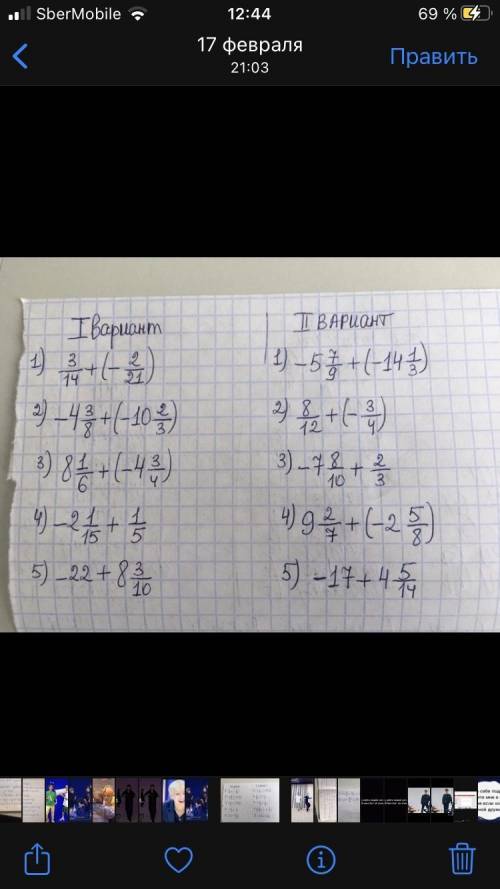 SberMobile 12:44 69 %
17 февраля
21:03
Править
I Вариант
1) 3/14 + (- 2/21)
2) -4 3/8 + (-10 2/3)
3) 8 1/6 + (-4 3/4)
4) -2 1/15 + 1/5
5) -22 + 8 3/10
II ВАРИАНТ
1) -5 7/9 + (-14 1/3)
2) 8/12 + (- 3/4)
3) -7 8/10 + 2/3
4) 9 2/7 + (-2 5/8)
5) -17 + 4 5/14